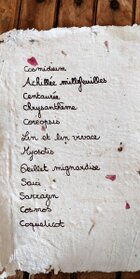 Cosmidium
Achillée millefeuilles
Centaurée
Chrysanthème
Coreopsis
Lin et lin vivace
Myosotis
Oeillet mignardise
Souci
Sarrazin
Cosmos
Coquelicot